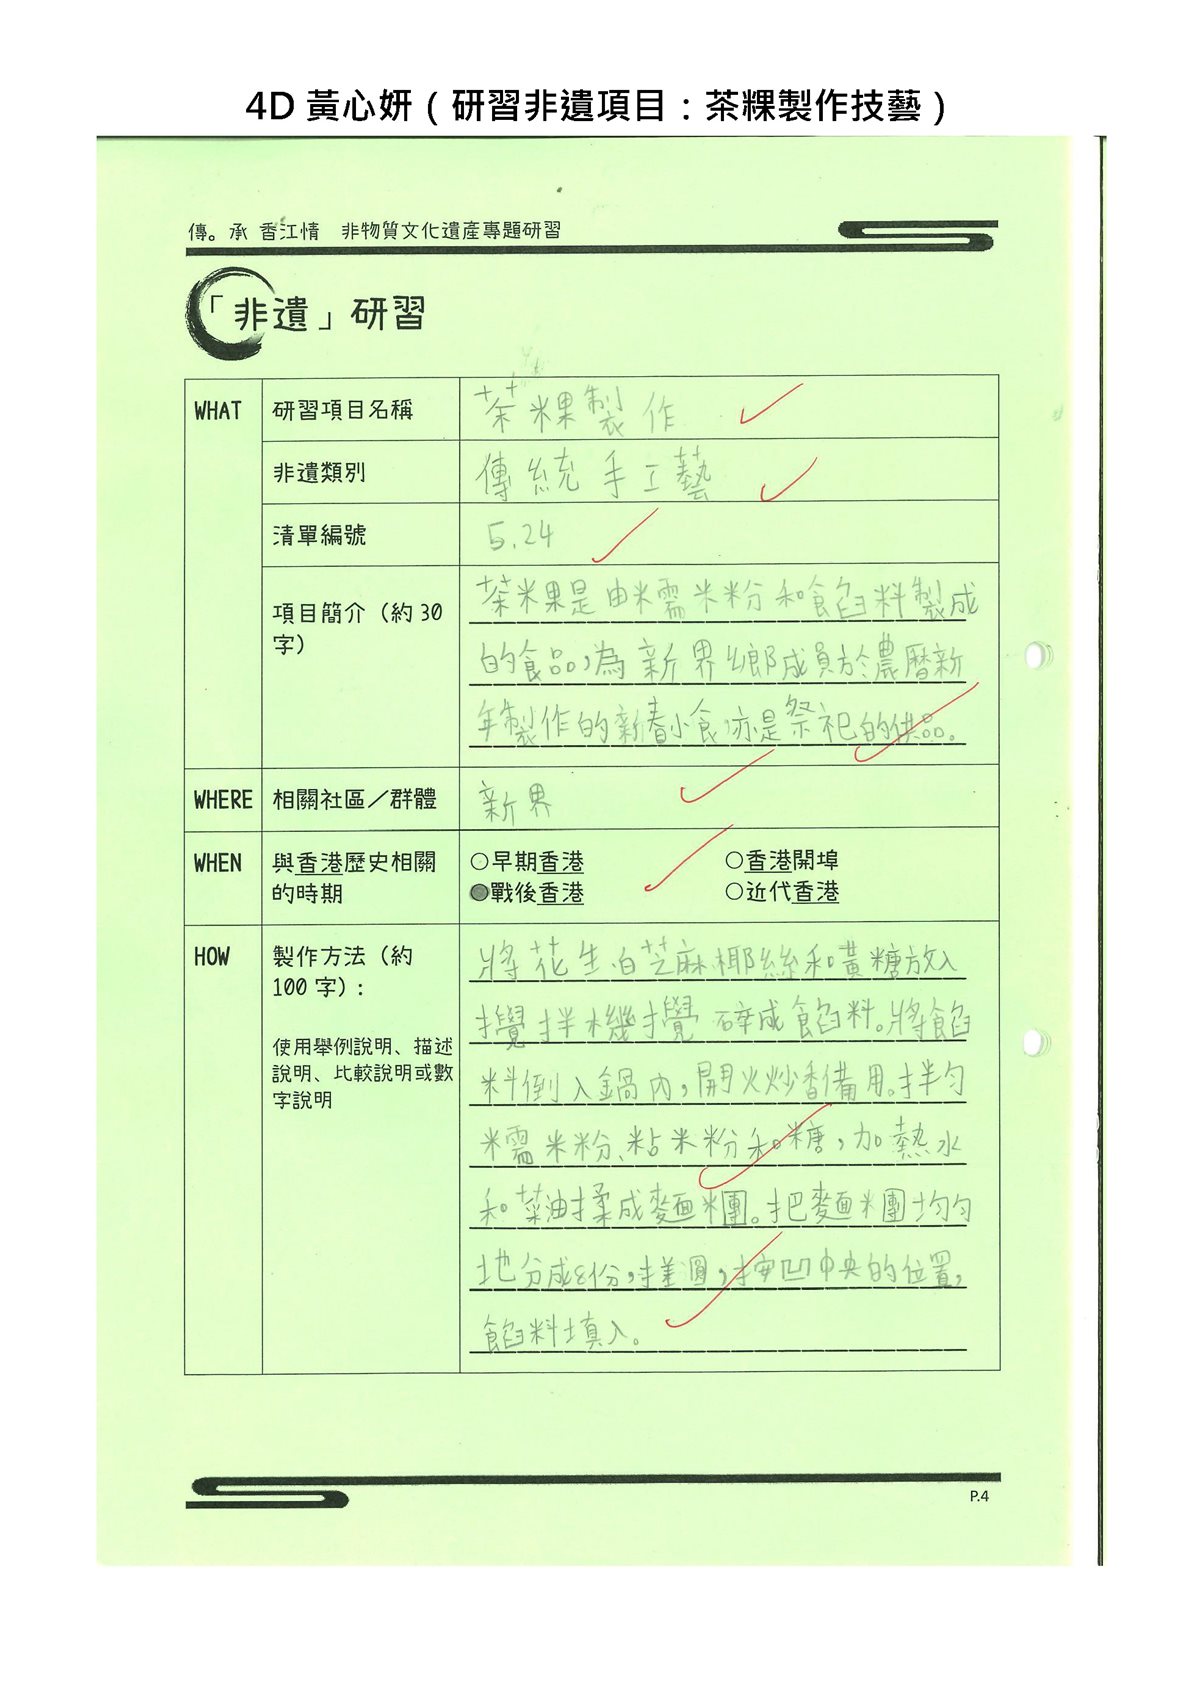 4D 黃心妍（研習非遺項目：茶粿製作技藝）
傳。承 香江情 非物質文化遺產專題研習
「非遺」研習
WHAT
研習項目名稱
茶粿製作
非遺類別
傳統手工藝
清單編號
5.24
項目簡介（約 30
字）
茶粿是由糯米粉和餡料製成
的食品，為新界鄉成員於農曆新
年製作的新春小食，亦是祭祀的供品。
WHERE
相關社區／群體
新界
WHEN
與香港歷史相關
的時期
○早期香港
○香港開埠
●戰後香港
○近代香港
HOW
製作方法（約
100 字）：
使用舉例說明、描述
說明、比較說明或數
字說明
將花生、白芝麻、椰絲和黃糖放入
攪拌機攪碎成餡料。將餡
料倒入鍋內，開火炒香備用。拌勻
糯米粉、粘米粉和糖，加熱水
和菜油揉成麵粉團。把麵粉團均勻
地分成8份，搓圓，按凹中央的位置，
餡料填入。
P.4